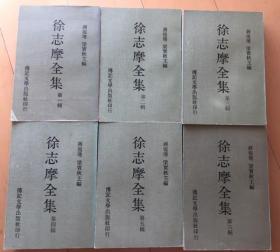 蔣復璁 梁實秋主編
徐志摩全集
第一輯
傳記文學出版社印行
蔣復璁 梁實秋主編
徐志摩全集
第二輯
傳記文學出版社印行
蔣復璁 梁實秋主編
徐志摩全集
第三輯
傳記文學出版社印行
蔣復璁 梁實秋主編
徐志摩全集
第四輯
傳記文學出版社印行
蔣復璁 梁實秋主編
徐志摩全集
第五輯
傳記文學出版社印行
蔣復璁 梁實秋主編
徐志摩全集
第六輯
傳記文學出版社印行